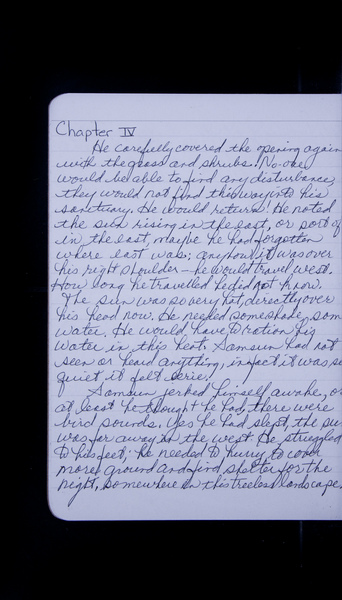 Chapter IV
He carefully covered the opening again
with the grass and shrubs. No-one
would be able to find any disturbance,
they would not find this way into his
sanctuary. He would return! He noted
the sun rising in the east, or sort of
in the east, maybe he had forgotten
where east was; anyhow it was over
his right shoulder – he would travel west.
How long he travelled he did not know.
The sun was so very hot, directly over
his head now. He needed some shade, som
water. He would have to ration his
water in this heat. Samsun had not
seen or heard anything, in fact it was so
quiet, it felt eerie!
Samsun jerked himself awake, or
at least he thought he had, there were
bird sounds. Yes he had slept, the sun
was far away in the west. He struggled
to his feet; he needed to hurry to cover
more ground and find shelter for the
night, somewhere in this treeless landscape.